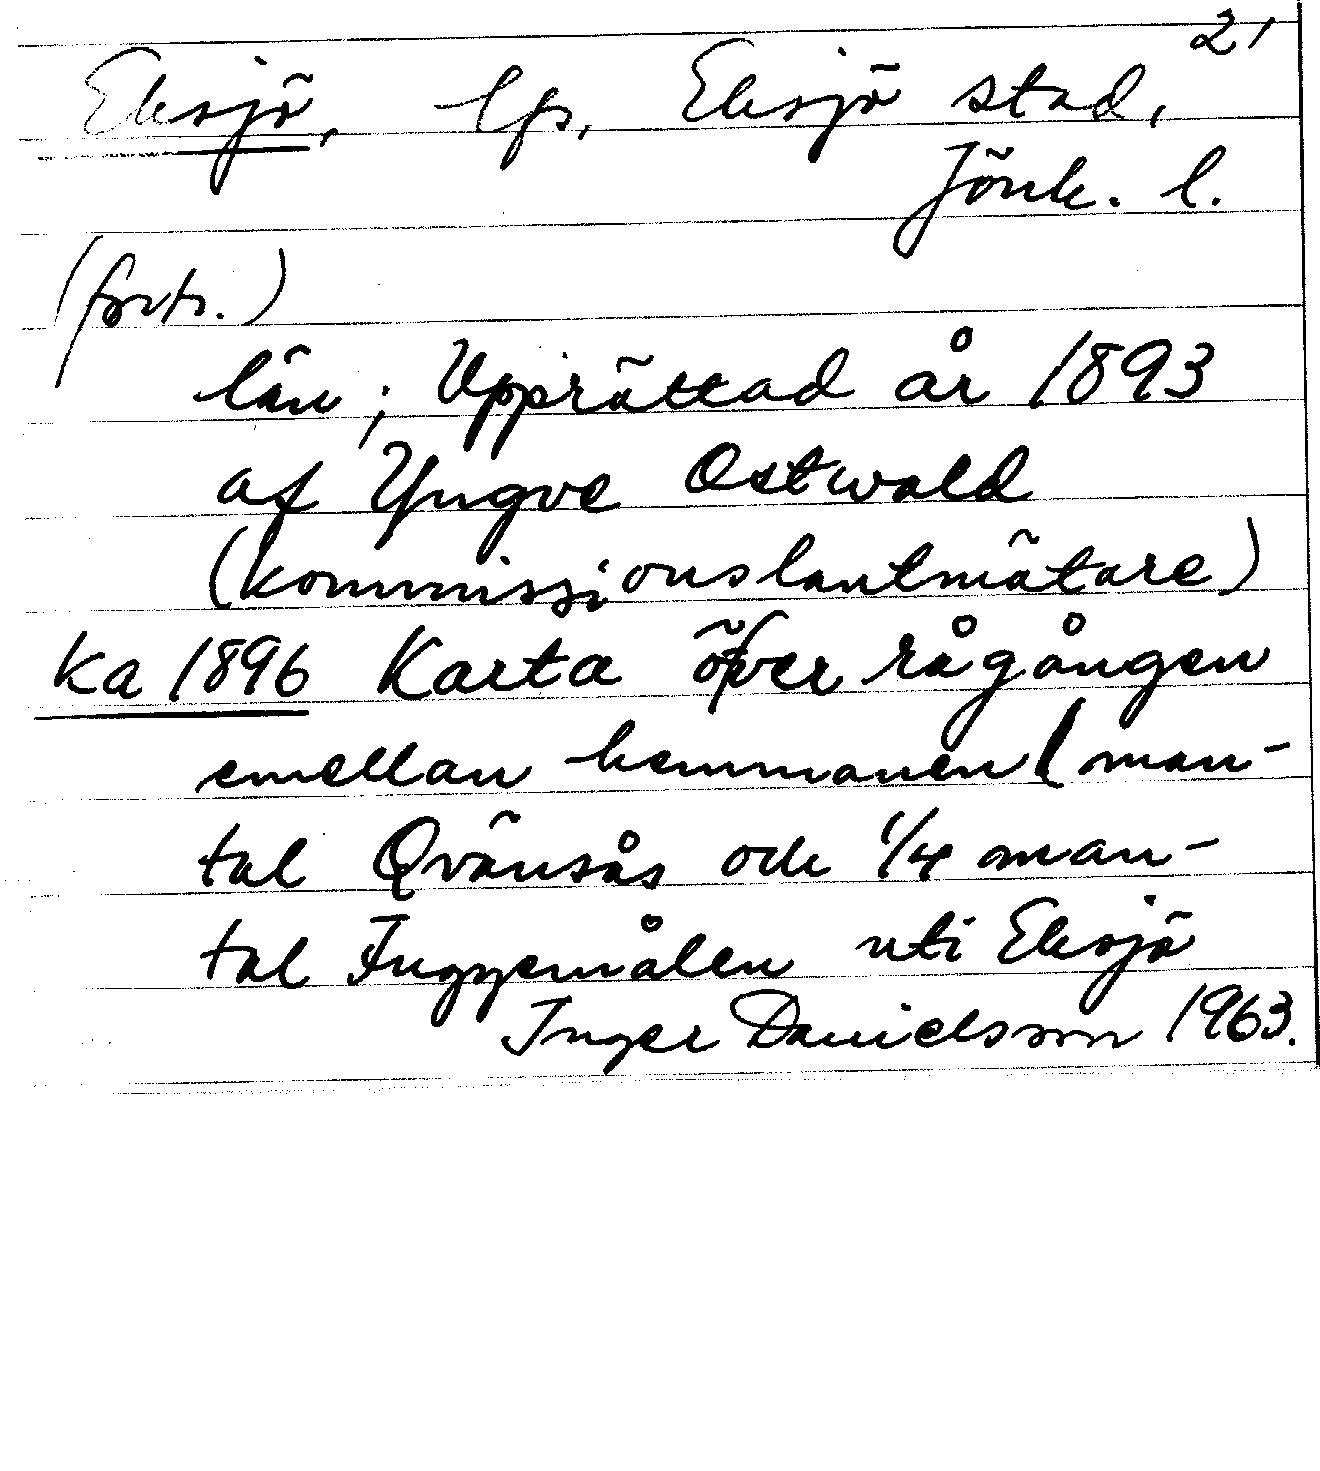 21
Eksjö, lfs, Eksjö stad,
Jönk. l.
(forts.)
län; Upprättad år 1893
af Yngve Ostwald
(kommissionslantmätare)
ka 1896 Karta öfver rågången
emellan hemmanen 1 man-
tal Qvänsås och 1/4 man-
tal Inggemålen uti Eksjö
Inger Danielsson 1963.